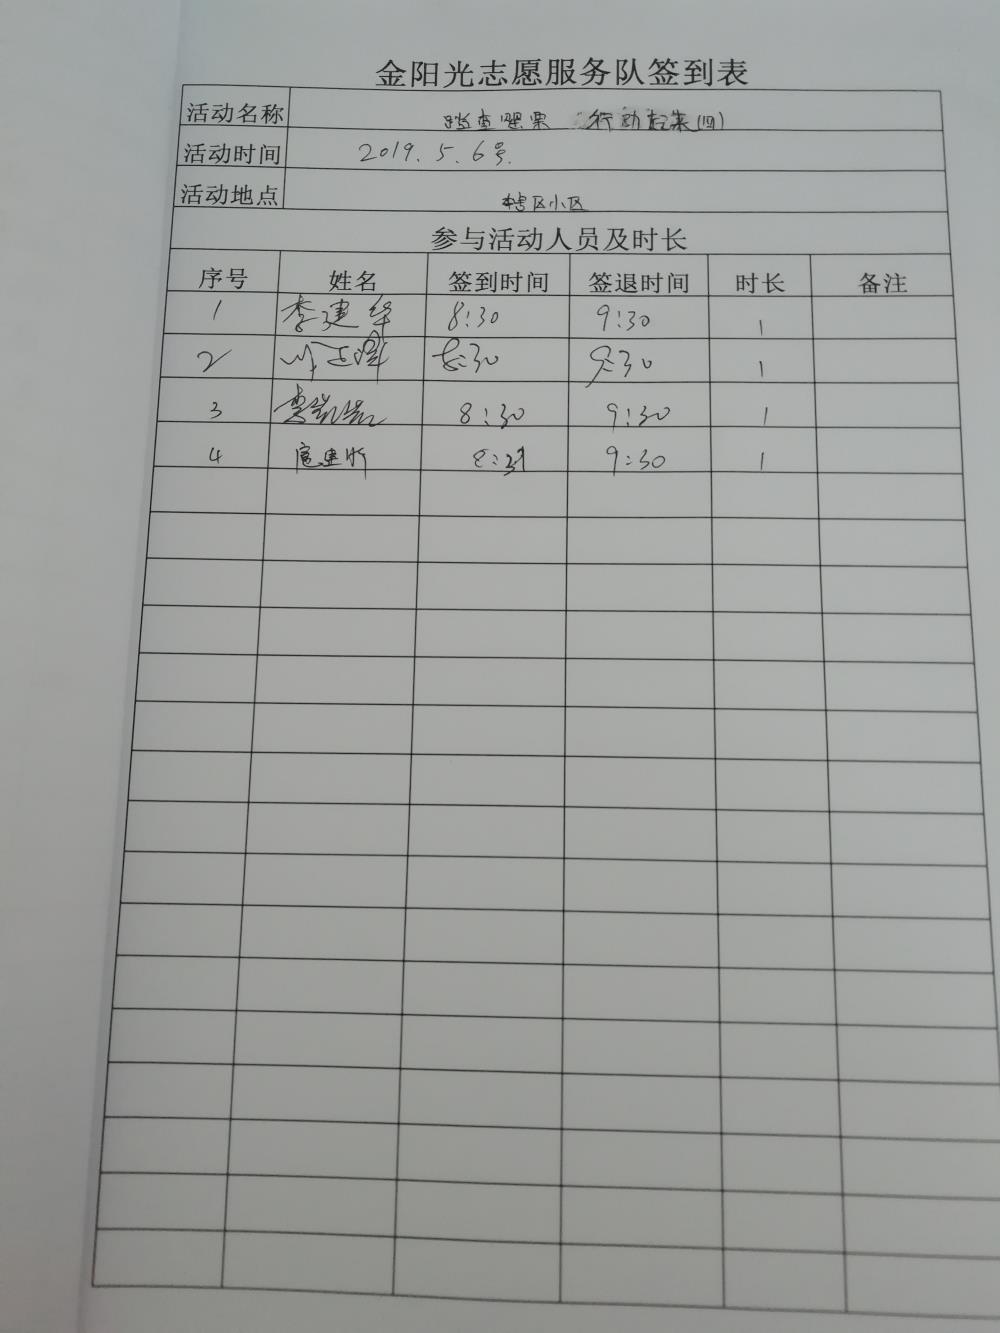 金阳光志愿服务队签到表
活动名称 踏查罂粟 行动起来(四)
活动时间 2019.5.6号.
活动地点 辖区小区
参与活动人员及时长
序号 姓名 签到时间 签退时间 时长 备注
1 李建华 8:30 9:30 1
2 8:30 9:30 1
3 8:30 9:30 1
4 9:30 1